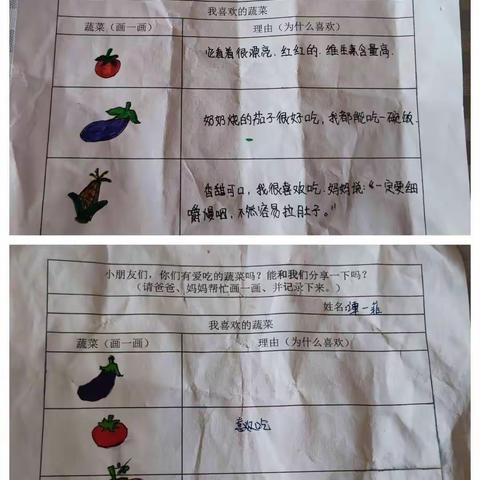 我喜欢的蔬菜
蔬菜（画一画）
理由（为什么喜欢）
它看着很漂亮.红红的.维生素含量高.
奶奶烧的茄子很好吃，我都能吃一碗饭.
香甜可口，我很喜欢吃.妈妈说：“一定要细
嚼慢咽，不然容易拉肚子。”
小朋友们，你们有爱吃的蔬菜吗？能和我们分享一下吗？
（请爸爸、妈妈帮忙画一画、并记录下来。）
姓名:
我喜欢的蔬菜
蔬菜（画一画）
理由（为什么喜欢）
喜欢吃